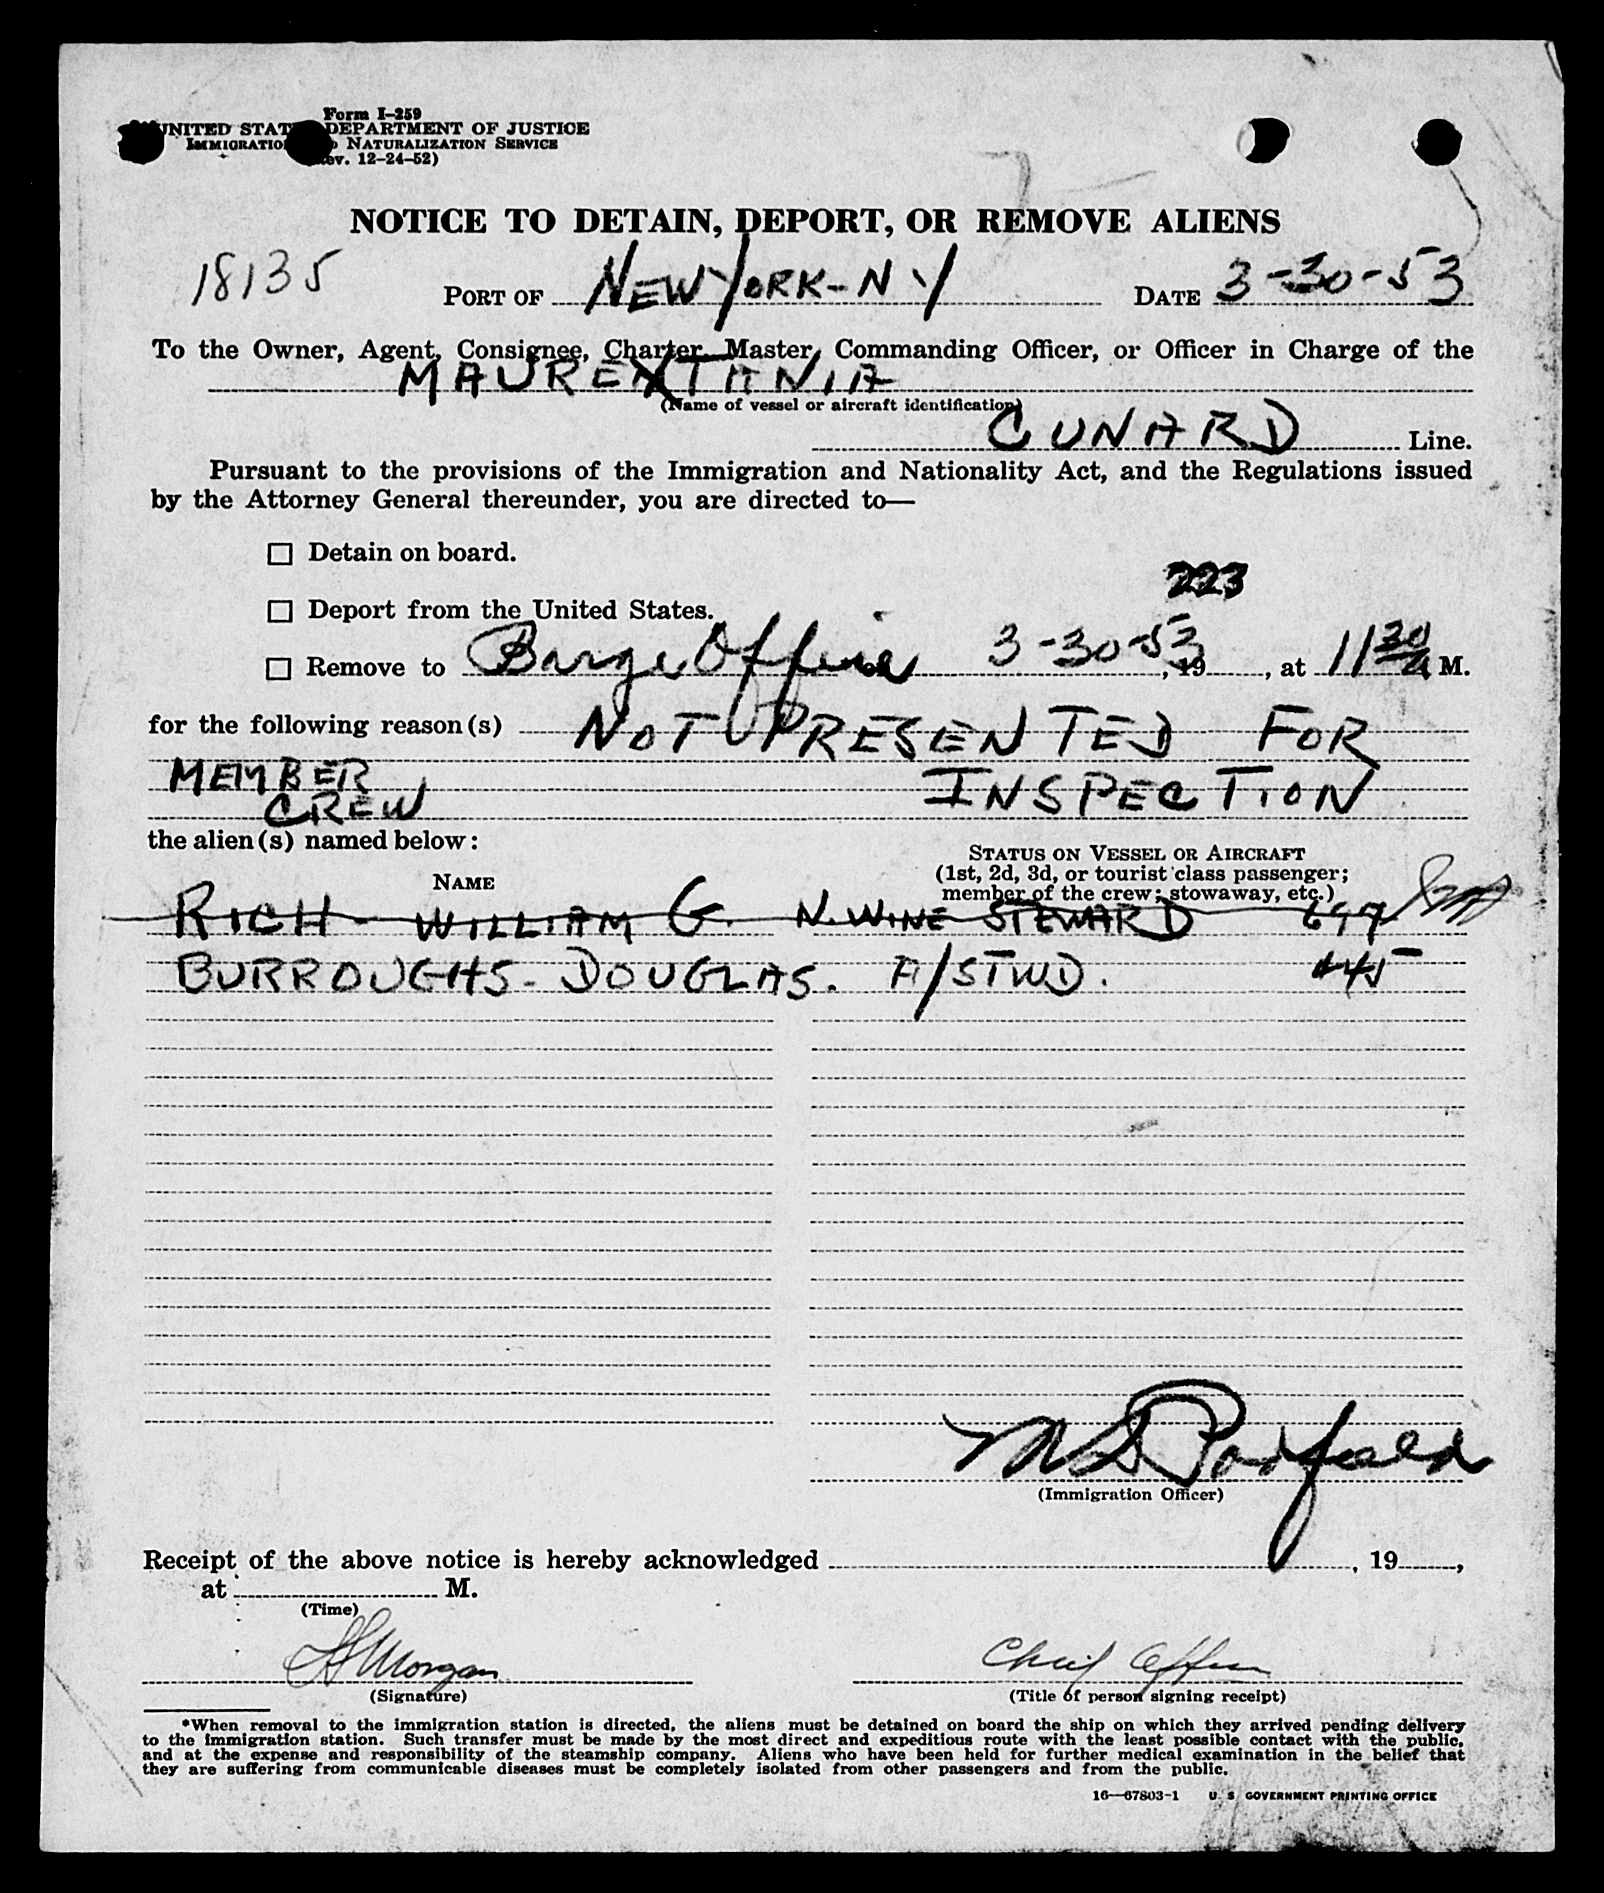 Form I-259
UNITED STAT DEPARTMENT OF JUSTICE
IMMIGRATIO NATURALIZATION SERVICE
ev. 12-24-52)
NOTICE TO DETAIN, DEPORT, OR REMOVE ALIENS
18135 PORT OF NEW YORK-NY DATE 3-30-53
To the Owner, Agent, Consignee, Charter, Master, Commanding Officer, or Officer in Charge of the
MAURETANIA
(Name of vessel or aircraft identification)
CUNARD Line.
Pursuant to the provisions of the Immigration and Nationality Act, and the Regulations issued
by the Attorney General thereunder, you are directed to—
☐ Detain on board.
223
☐ Deport from the United States.
☐ Remove to Barge Office 3-30-53, 19, at 11 30 A M.
for the following reason(s) NOT PRESENTED FOR
MEMBER INSPECTION
CREW
the alien(s) named below:
STATUS ON VESSEL OR AIRCRAFT
(1st, 2d, 3d, or tourist class passenger;
NAME member of the crew; stowaway, etc.)
RICH - WILLIAM G. N. WINE STEWARD 697
BURROUGHS - DOUGLAS. A/STWD. 445
(Immigration Officer)
Receipt of the above notice is hereby acknowledged , 19 ,
at M.
(Time)
Morgan Chief Officer
(Signature) (Title of person signing receipt)
*When removal to the immigration station is directed, the aliens must be detained on board the ship on which they arrived pending delivery
to the immigration station. Such transfer must be made by the most direct and expeditious route with the least possible contact with the public,
and at the expense and responsibility of the steamship company. Aliens who have been held for further medical examination in the belief that
they are suffering from communicable diseases must be completely isolated from other passengers and from the public.
16—67803-1 U. S. GOVERNMENT PRINTING OFFICE